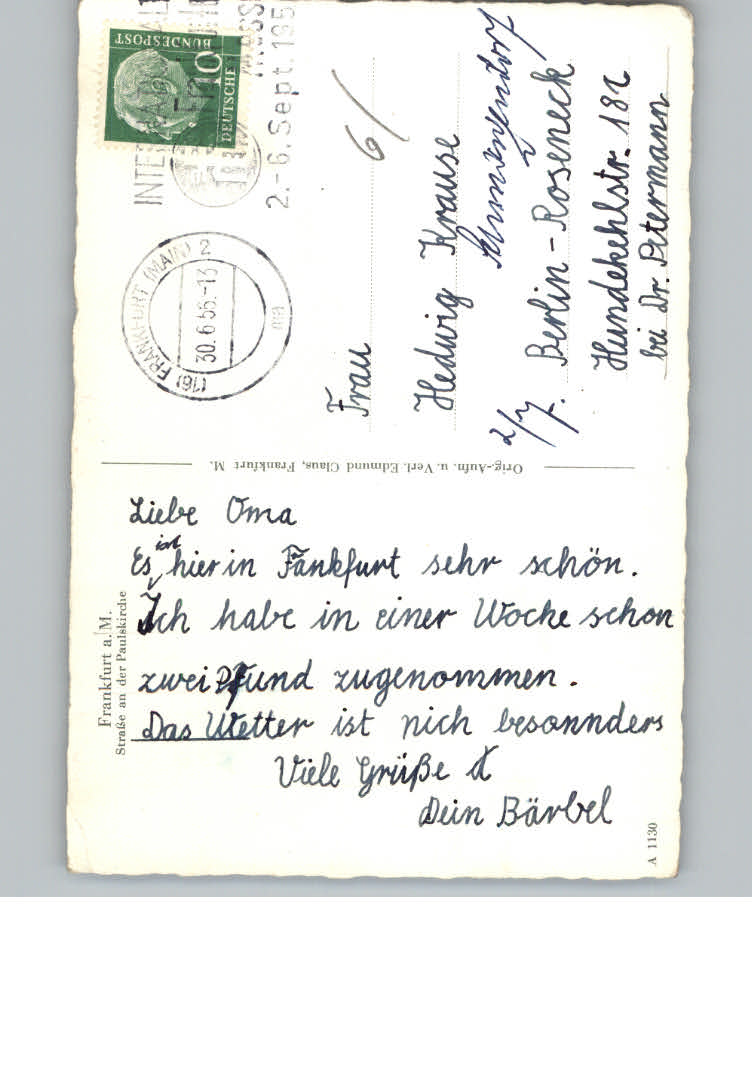 Liebe Oma
Es ist hier in Fankfurt sehr schön.
Ich habe in einer Woche schon
zwei Pfund zugenommen.
Das Wetter ist nich besonnders
Viele Grüße
Dein Bärbel
Frankfurt a. M.
Straße an der Paulskirche
A 1130
Orig.-Aufn. u. Verl. Edmund Claus, Frankfurt M.
Frau
Hedwig Krause
Schmargendorf
Berlin-Roseneck
Hundekehlstr. 18
bei Dr. Petermann
2/7.
6/
DEUTSCHE
BUNDESPOST
10
(16) FRANKFURT (MAIN) 2
30.6.56.-13
ma
2.-6. Sept. 195